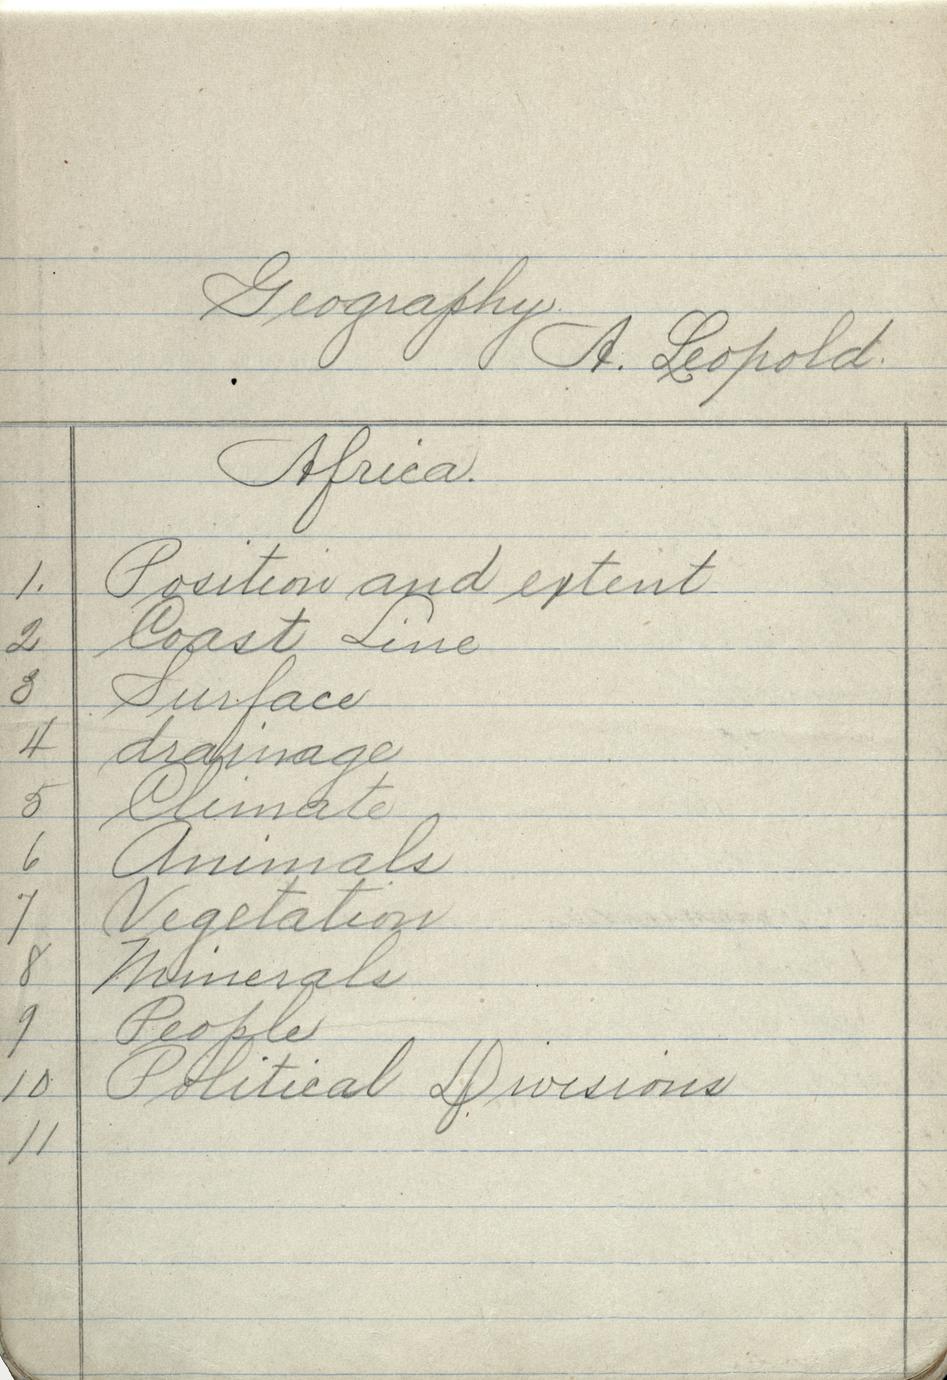 Geography
A. Leopold.
Africa.
1. Position and extent
2 Coast Line
3 Surface
4 drainage
5 Climate
6 Animals
7 Vegetation
8 Minerals
9 People
10 Political Divisions
11